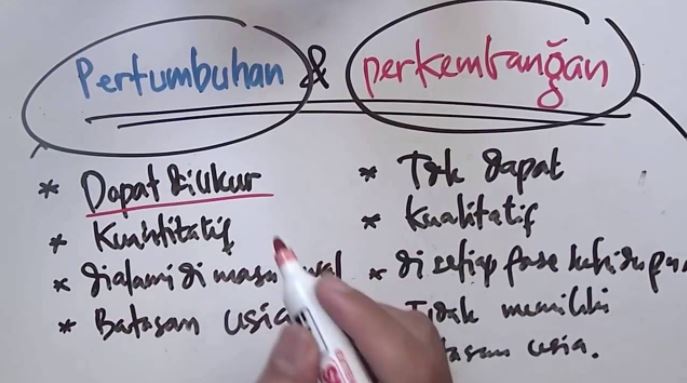 Pertumbuhan & perkembangan
* Dapat diukur
* Kuantitatif
* dialami di masa
* Batasan usia
* Tdk dapat
* Kualitatif
* di setiap fase kehidupan
Tidak memiliki
usia.